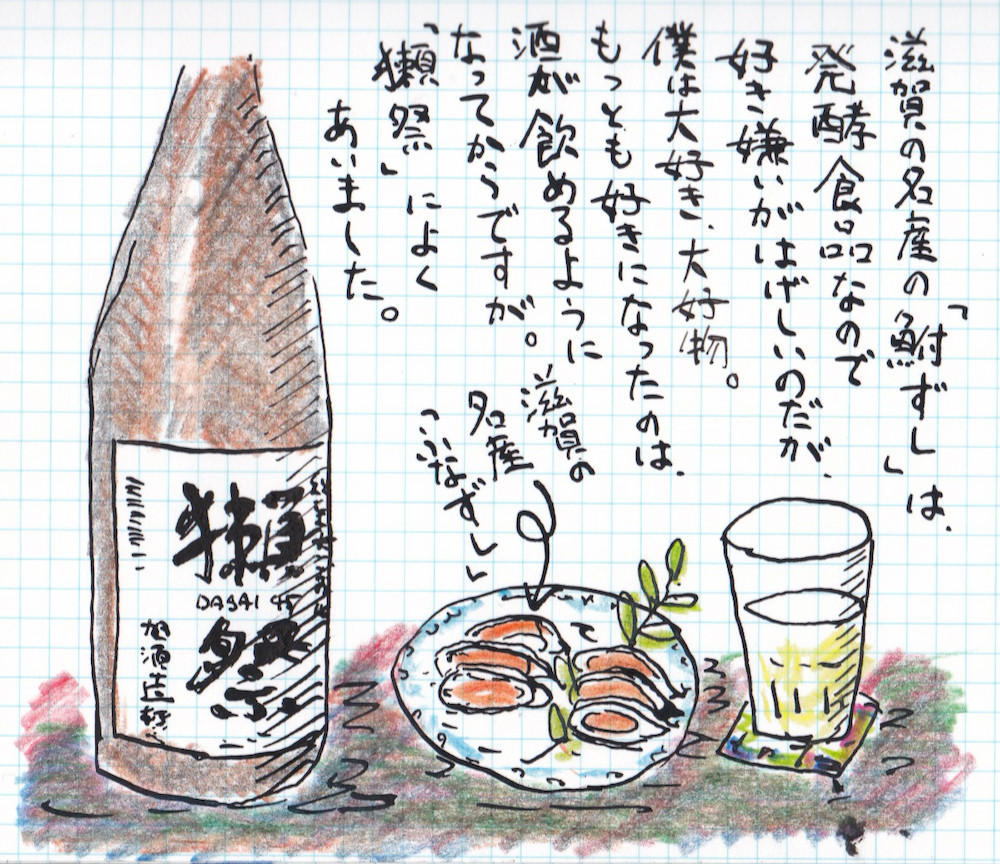 滋賀の名産の「鮒ずし」は、
発酵食品なので
好き嫌いがはげしいのだが、
僕は大好き、大好物。
もっとも好きになったのは、
酒が飲めるように
なってからですが。
「獺祭」によく
あいました。
滋賀の
名産
「ふなずし」
獺
DASAI 45
祭
旭酒造